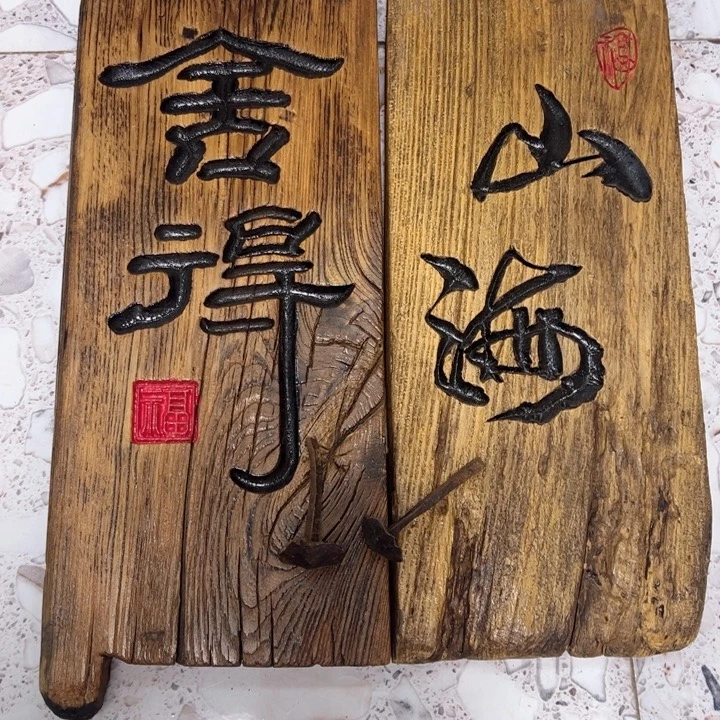 舍得
福
福
山海